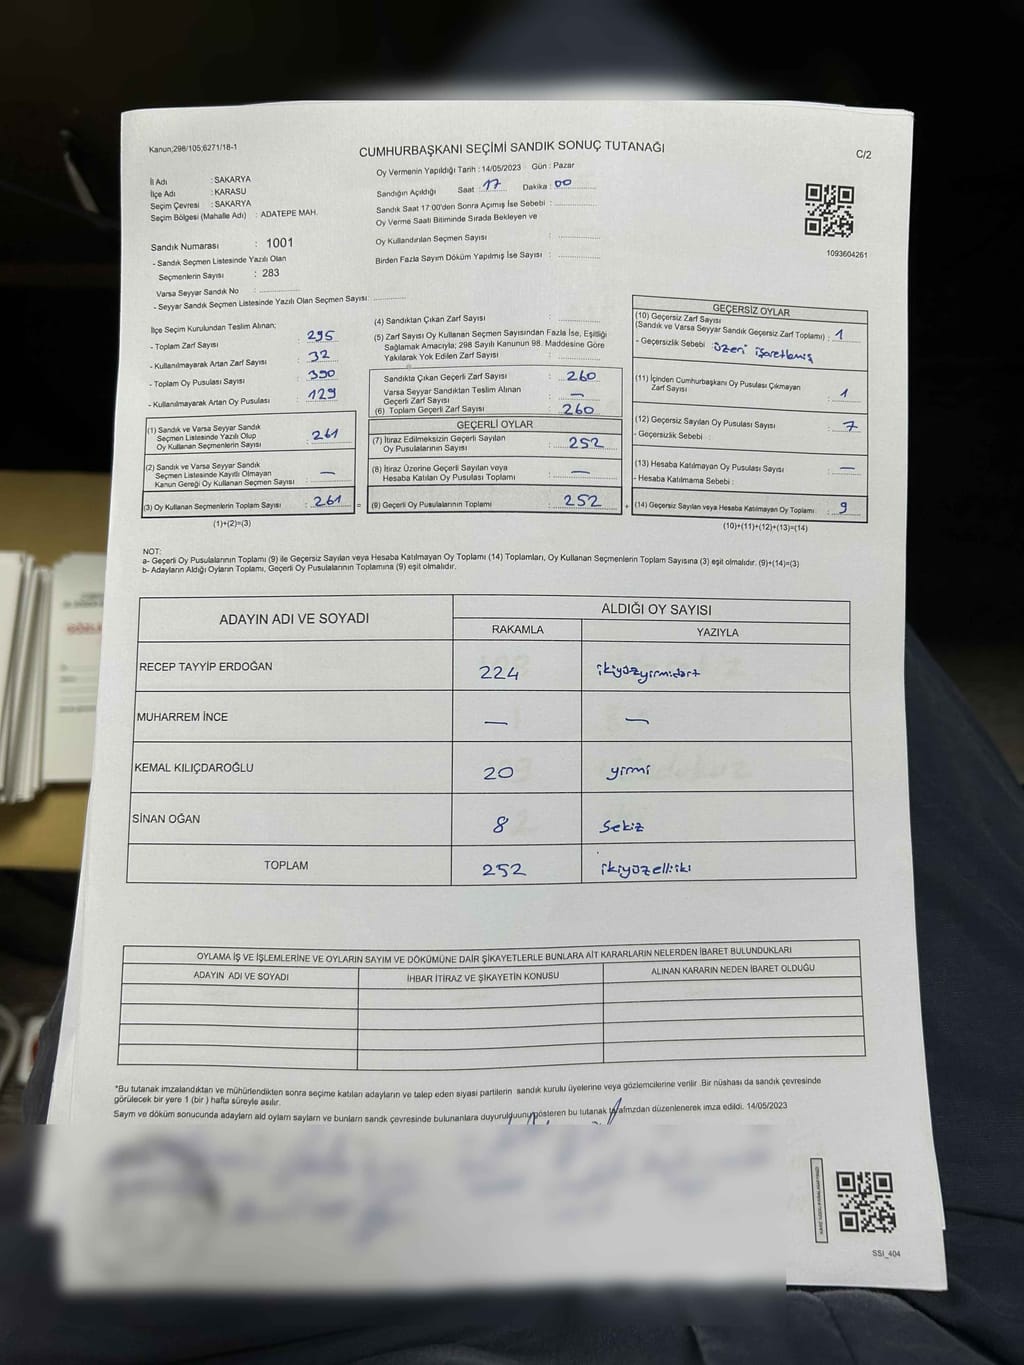 Kanun;298/105;6271/18-1
CUMHURBAŞKANI SEÇİMİ SANDIK SONUÇ TUTANAĞI
C/2
İl Adı : SAKARYA
İlçe Adı : KARASU
Seçim Çevresi : SAKARYA
Seçim Bölgesi (Mahalle Adı) : ADATEPE MAH.
Sandık Numarası : 1001
- Sandık Seçmen Listesinde Yazılı Olan
Seçmenlerin Sayısı : 283
Varsa Seyyar Sandık No :
- Seyyar Sandık Seçmen Listesinde Yazılı Olan Seçmen Sayısı:
Oy Vermenin Yapıldığı Tarih : 14/05/2023 Gün : Pazar
Sandığın Açıldığı Saat : 17 Dakika : 00
Sandık Saat 17:00'den Sonra Açımış İse Sebebi :
Oy Verme Saati Bitiminde Sırada Bekleyen ve
Oy Kullandırılan Seçmen Sayısı :
Birden Fazla Sayım Döküm Yapılmış İse Sayısı :
1093604261
İlçe Seçim Kurulundan Teslim Alınan;
- Toplam Zarf Sayısı : 295
- Kullanılmayarak Artan Zarf Sayısı : 32
- Toplam Oy Pusulası Sayısı : 390
- Kullanılmayarak Artan Oy Pusulası : 129
(1) Sandık ve Varsa Seyyar Sandık
Seçmen Listesinde Yazılı Olup
Oy Kullanan Seçmenlerin Sayısı : 261
(2) Sandık ve Varsa Seyyar Sandık
Seçmen Listesinde Kayıtlı Olmayan
Kanun Gereği Oy Kullanan Seçmen Sayısı : —
(3) Oy Kullanan Seçmenlerin Toplam Sayısı : 261 =
(1)+(2)=(3)
(4) Sandıktan Çıkan Zarf Sayısı :
(5) Zarf Sayısı Oy Kullanan Seçmen Sayısından Fazla İse, Eşitliği
Sağlamak Amacıyla; 298 Sayılı Kanunun 98. Maddesine Göre
Yakılarak Yok Edilen Zarf Sayısı :
Sandıkta Çıkan Geçerli Zarf Sayısı : 260
Varsa Seyyar Sandıktan Teslim Alınan
Geçerli Zarf Sayısı : —
(6) Toplam Geçerli Zarf Sayısı : 260
GEÇERLİ OYLAR
(7) İtiraz Edilmeksizin Geçerli Sayılan
Oy Pusulalarının Sayısı : 252
(8) İtiraz Üzerine Geçerli Sayılan veya
Hesaba Katılan Oy Pusulası Toplamı : —
(9) Geçerli Oy Pusulalarının Toplamı : 252 +
GEÇERSİZ OYLAR
(10) Geçersiz Zarf Sayısı
(Sandık ve Varsa Seyyar Sandık Geçersiz Zarf Toplamı) : 1
- Geçersizlik Sebebi : üzeri işaretlemiş
(11) İçinden Cumhurbaşkanı Oy Pusulası Çıkmayan
Zarf Sayısı : 1
(12) Geçersiz Sayılan Oy Pusulası Sayısı : 7
- Geçersizlik Sebebi :
(13) Hesaba Katılmayan Oy Pusulası Sayısı : —
- Hesaba Katılmama Sebebi :
(14) Geçersiz Sayılan veya Hesaba Katılmayan Oy Toplamı : 9
(10)+(11)+(12)+(13)=(14)
NOT:
a- Geçerli Oy Pusulalarının Toplamı (9) ile Geçersiz Sayılan veya Hesaba Katılmayan Oy Toplamı (14) Toplamları, Oy Kullanan Seçmenlerin Toplam Sayısına (3) eşit olmalıdır. (9)+(14)=(3)
b- Adayların Aldığı Oyların Toplamı, Geçerli Oy Pusulalarının Toplamına (9) eşit olmalıdır.
ADAYIN ADI VE SOYADI
ALDIĞI OY SAYISI
RAKAMLA YAZIYLA
RECEP TAYYİP ERDOĞAN 224 ikiyüzyirmidört
MUHARREM İNCE — —
KEMAL KILIÇDAROĞLU 20 yirmi
SİNAN OĞAN 8 sekiz
TOPLAM 252 ikiyüzelliiki
OYLAMA İŞ VE İŞLEMLERİNE VE OYLARIN SAYIM VE DÖKÜMÜNE DAİR ŞİKAYETLERLE BUNLARA AİT KARARLARIN NELERDEN İBARET BULUNDUKLARI
ADAYIN ADI VE SOYADI İHBAR İTİRAZ VE ŞİKAYETİN KONUSU ALINAN KARARIN NEDEN İBARET OLDUĞU
"Bu tutanak imzalandıktan ve mühürlendikten sonra seçime katılan adayların ve talep eden siyasi partilerin sandık kurulu üyelerine veya gözlemcilerine verilir .Bir nüshası da sandık çevresinde
görülecek bir yere 1 (bir ) hafta süreyle asılır.
Sayım ve döküm sonucunda adayları ald oyları sayıları ve bunları sandk çevresinde bulunanlara duyurulduunu gösteren bu tutanak tarafmzdan düzenlenerek imza edildi. 14/05/2023
SSI_404